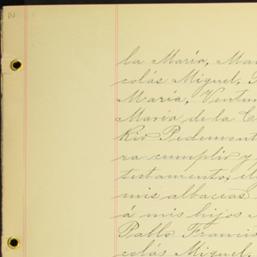 la María, Mar
colás Miguel,
María, Ventu
María de la C
Rio Pedemont
ra cumplir y
testamento, el
mis albaceas
á mis hijos
Pablo Francis
colás Miguel,